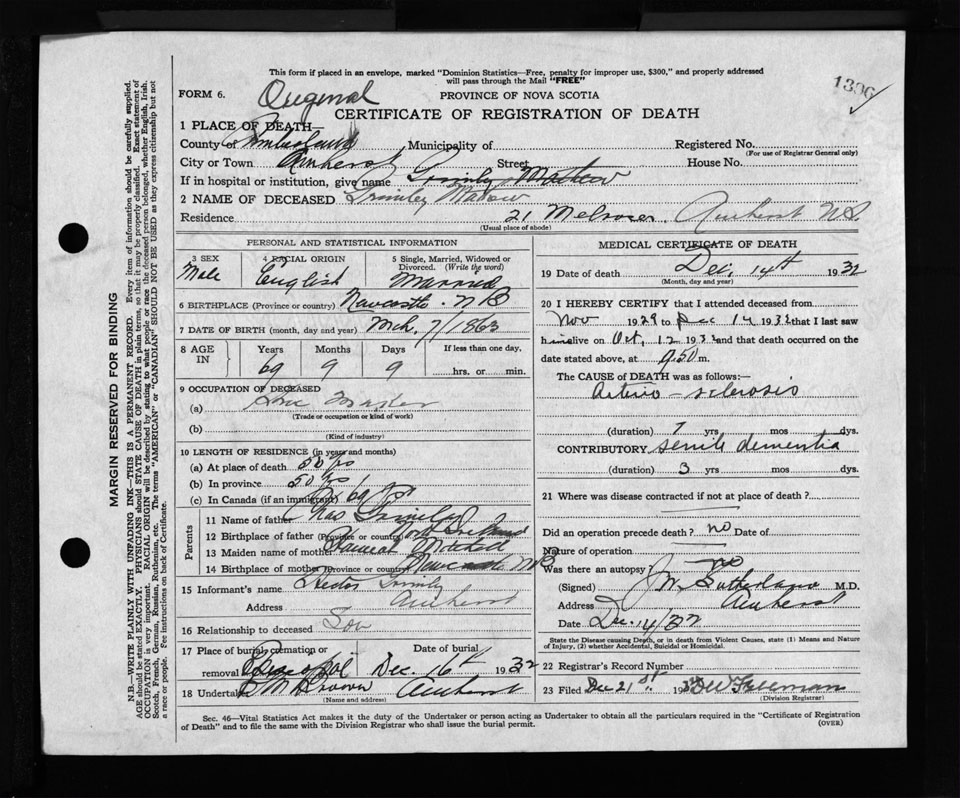 This form if placed in an envelope, marked "Dominion Statistics—Free, penalty for improper use, $300," and properly addressed
will pass through the Mail "FREE"
1306
FORM 6. Original PROVINCE OF NOVA SCOTIA
CERTIFICATE OF REGISTRATION OF DEATH
1 PLACE OF DEATH—
County of Cumberland Municipality of Registered No.
(For use of Registrar General only)
City or Town Amherst Street House No.
If in hospital or institution, give name
2 NAME OF DECEASED
Residence 21 Melrose Amherst N.S.
(Usual place of abode)
PERSONAL AND STATISTICAL INFORMATION
3 SEX 4 RACIAL ORIGIN 5 Single, Married, Widowed or
Divorced. (Write the word)
Male English Married
6 BIRTHPLACE (Province or country) Newcastle - N B
7 DATE OF BIRTH (month, day and year) Mch. 7/1863
8 AGE IN Years Months Days If less than one day,
69 9 9 hrs. or min.
9 OCCUPATION OF DECEASED
(a)
(Trade or occupation or kind of work)
(b)
(Kind of industry)
10 LENGTH OF RESIDENCE (in years and months)
(a) At place of death 50 yrs
(b) In province 50 yrs
(c) In Canada (if an immigrant) 69 yrs
Parents
11 Name of father Chas
12 Birthplace of father (Province or country)
13 Maiden name of mother Hannah Mitchell
14 Birthplace of mother (Province or country) Newcastle N B
15 Informant's name
Address Amherst
16 Relationship to deceased Son
17 Place of burial, cremation or Date of burial
removal Dec. 16th 1932
18 Undertaker B M Brown Amherst
(Name and address)
MEDICAL CERTIFICATE OF DEATH
19 Date of death Dec, 14th 1932
(Month, day and year)
20 I HEREBY CERTIFY that I attended deceased from
Nov 1929 to Dec 14 1932 that I last saw
him alive on Oct, 12 1932 and that death occurred on the
date stated above, at 9.50 m.
The CAUSE of DEATH was as follows:—
Arterio-sclerosis
(duration) 7 yrs mos dys.
CONTRIBUTORY senile dementia
(duration) 3 yrs mos dys.
21 Where was disease contracted if not at place of death?
Did an operation precede death? no Date of
Nature of operation
Was there an autopsy? no
(Signed) J. W. Sutherland M.D.
Address Amherst
Date Dec. 14/32
State the Disease causing Death, or in death from Violent Causes, state (1) Means and Nature
of Injury, (2) whether Accidental, Suicidal or Homicidal.
22 Registrar's Record Number
23 Filed Dec 21st 1932 Freeman
(Division Registrar)
Sec. 46—Vital Statistics Act makes it the duty of the Undertaker or person acting as Undertaker to obtain all the particulars required in the "Certificate of Registration
of Death" and to file the same with the Division Registrar who shall issue the burial permit. (OVER)
MARGIN RESERVED FOR BINDING
N.B.—WRITE PLAINLY WITH UNFADING INK—THIS IS A PERMANENT RECORD. Every item of information should be carefully supplied.
AGE should be stated EXACTLY. PHYSICIANS should STATE CAUSE OF DEATH in plain terms, so that it may be properly classified. Exact statement of
OCCUPATION is very important. RACIAL ORIGIN will be described by stating to what people or race the deceased person belonged, whether English, Irish,
Scotch, French, German, Russian, Ruthenian, etc. The terms "AMERICAN" or "CANADIAN" SHOULD NOT BE USED as they express citizenship but not
a race or people. Fee instructions on back of Certificate.